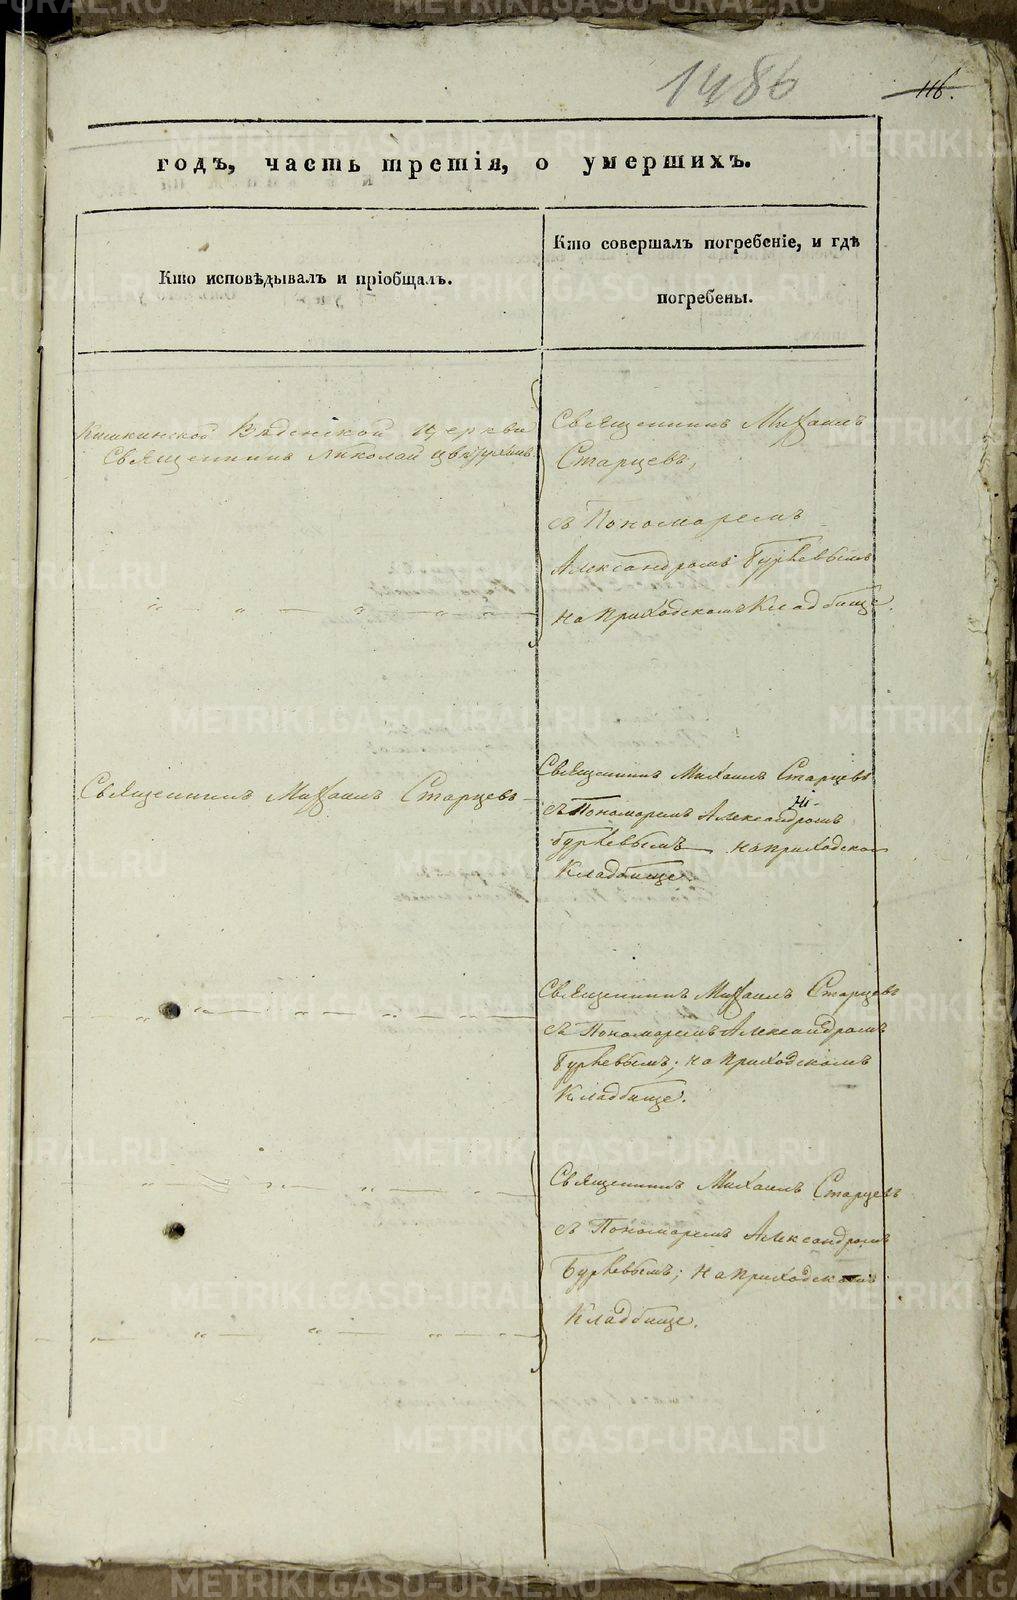 1486
116.
годъ, часть третія, о умершихъ.
Кто исповѣдывалъ и пріобщалъ.
Кто совершалъ погребеніе, и гдѣ
погребены.
Введенской Церкви
Священникъ Николай
Священникъ Михаилъ
Старцевъ,
съ Пономаремъ
Александромъ Гурьевымъ
на приходскомъ Кладбище.
Священникъ Михаилъ Старцевъ
Священникъ Михаилъ Старцевъ
съ Пономаремъ Александромъ
Гурьевымъ на приходском
Кладбище.
Священникъ Михаилъ Старцевъ
съ Пономаремъ Александромъ
Гурьевымъ; на приходскомъ
Кладбище.
Священникъ Михаилъ Старцевъ
съ Пономаремъ Александромъ
Гурьевымъ; на приходскомъ
Кладбище.
METRIKI.GASO-URAL.RU